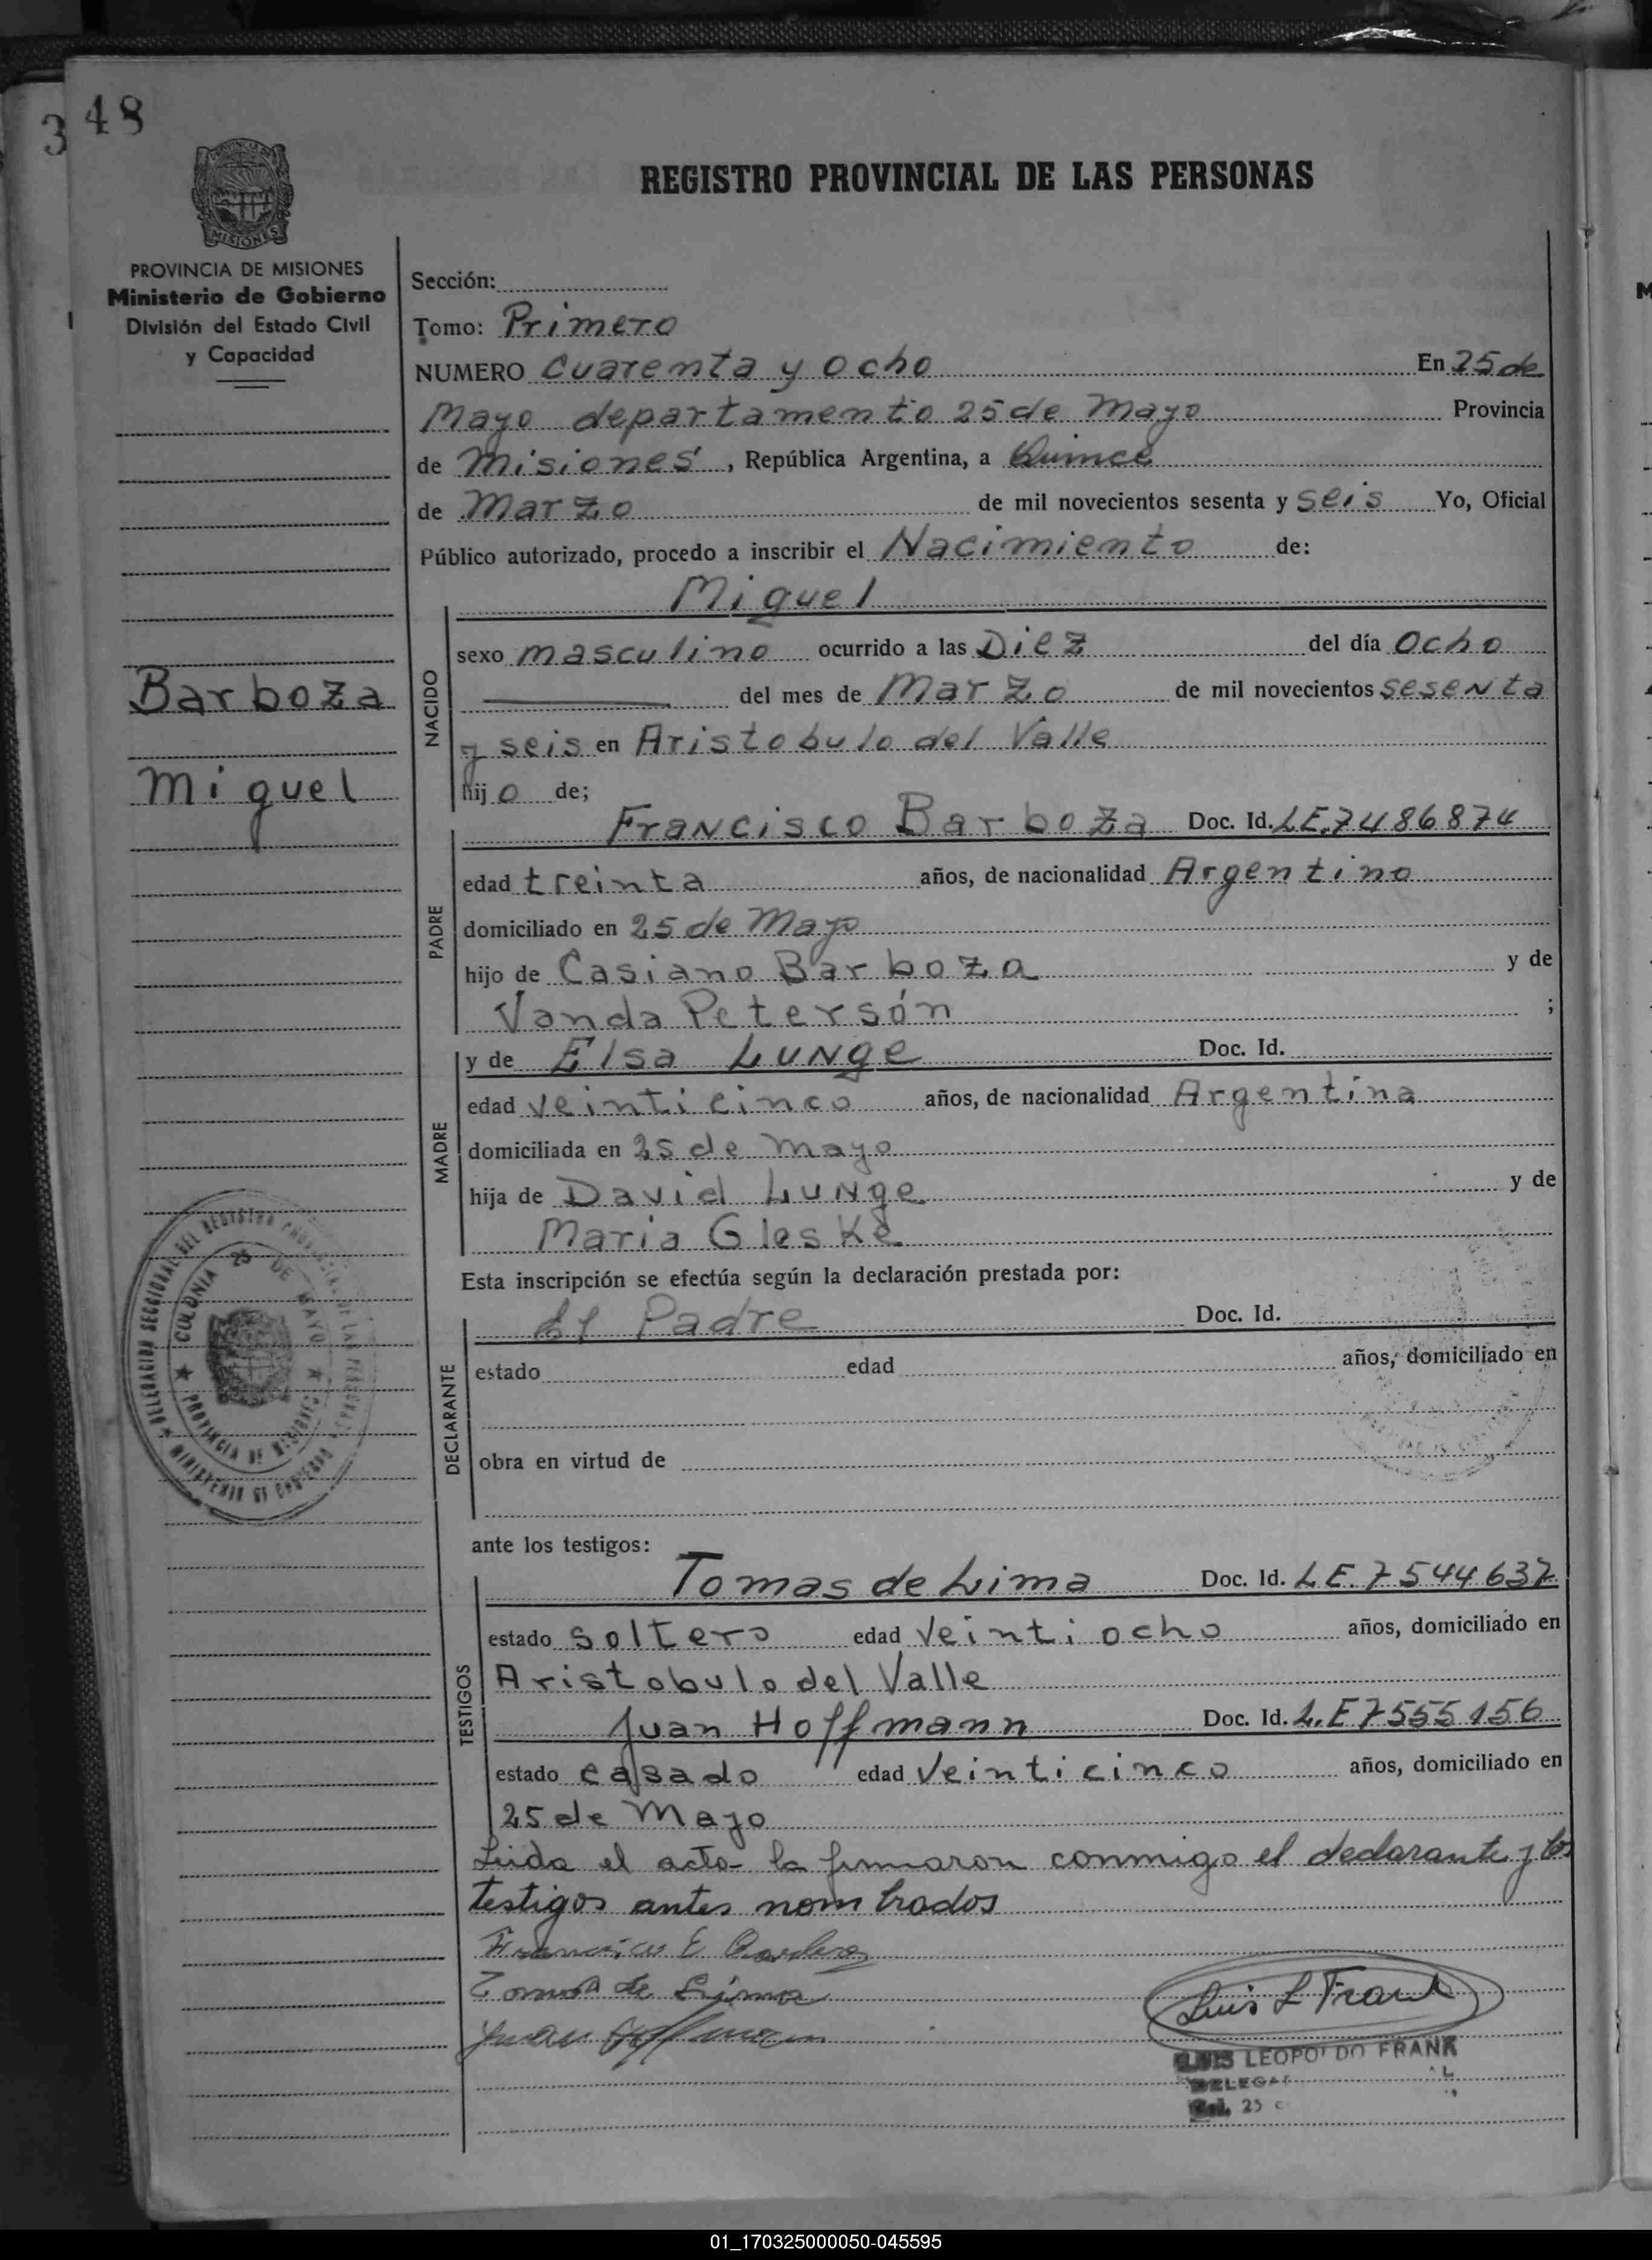 48
3
MISIONES
REGISTRO PROVINCIAL DE LAS PERSONAS
PROVINCIA DE MISIONES
Ministerio de Gobierno
División del Estado Civil
y Capacidad
Barboza
Miguel
Sección:
Tomo: Primero
NUMERO Cuarenta y Ocho En 25 de
Mayo departamento 25 de Mayo Provincia
de Misiones, República Argentina, a Quince
de Marzo de mil novecientos sesenta y seis Yo, Oficial
Público autorizado, procedo a inscribir el Nacimiento de:
Miguel
NACIDO
sexo masculino ocurrido a las Diez del día Ocho
del mes de Marzo de mil novecientos sesenta
y seis en Aristobulo del Valle
hijo de;
PADRE
Francisco Barboza Doc. Id. LE.7486874
edad treinta años, de nacionalidad Argentino
domiciliado en 25 de Mayo
hijo de Casiano Barboza y de
Vanda Petersón ;
MADRE
y de Elsa Lunge Doc. Id.
edad veinticinco años, de nacionalidad Argentina
domiciliada en 25 de Mayo
hija de David Lunge y de
Maria Gleske
Esta inscripción se efectúa según la declaración prestada por:
DECLARANTE
El Padre Doc. Id.
estado edad años, domiciliado en
obra en virtud de
ante los testigos:
TESTIGOS
Tomas de Lima Doc. Id. LE.7544637
estado soltero edad veintiocho años, domiciliado en
Aristobulo del Valle
Juan Hoffmann Doc. Id. L.E 7555156
estado casado edad Veinticinco años, domiciliado en
25 de Mayo
Leida el acta la firmaron conmigo el declarante y los
testigos antes nombrados
Francisco E Barboza
Tomas de Lima
Juan Hoffmann
Luis L Frank
LUIS LEOPOLDO FRANK
DELEGADO
25
DELEGACION SECCIONAL DEL REGISTRO PROVINCIAL DE LAS PERSONAS
MINISTERIO DE GOBIERNO
COLONIA 25 DE MAYO
PROVINCIA DE MISIONES
01_170325000050-045595